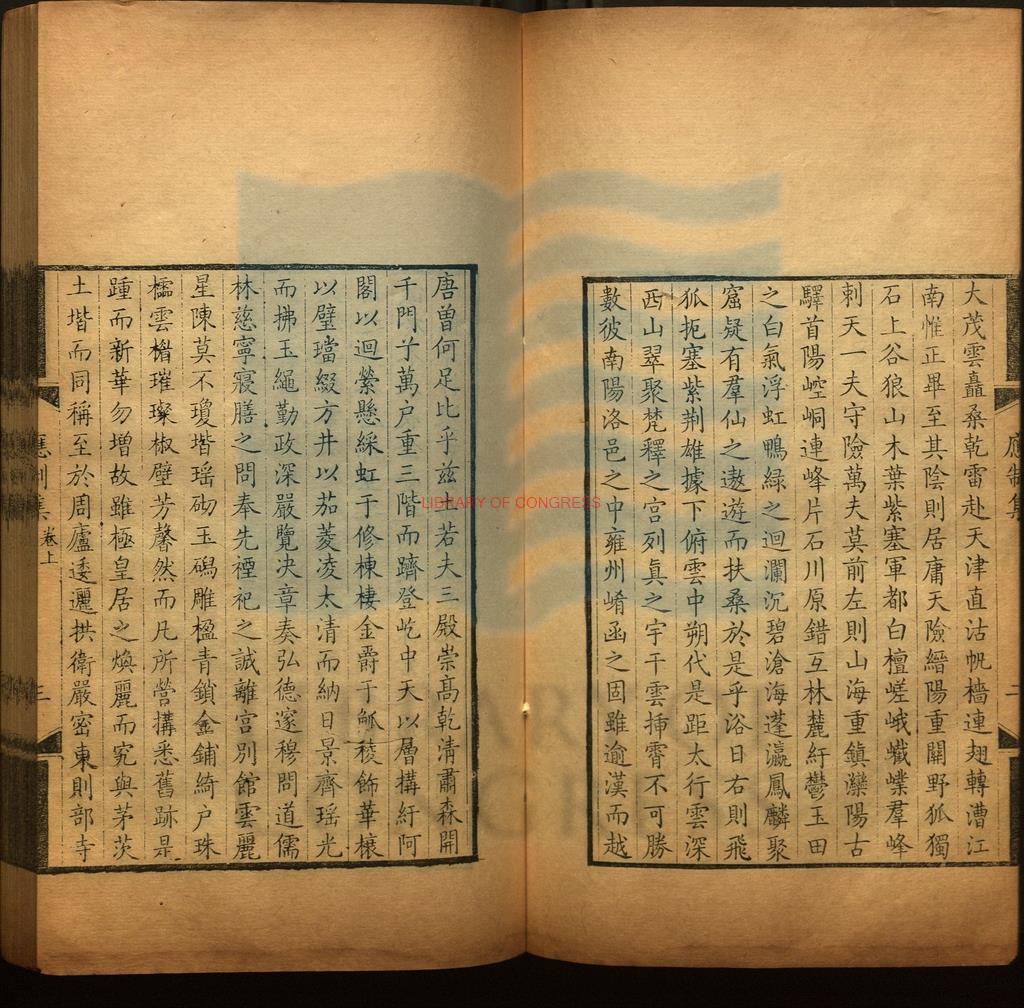 應制集
二
大茂雲矗桑乾雷赴天津直沽帆檣連翅轉漕江
南惟正畢至其陰則居庸天險縉陽重關野狐獨
石上谷狼山木葉紫塞軍都白檀嵯峨巀嶪羣峰
刺天一夫守險萬夫莫前左則山海重鎮灤陽古
驛首陽崆峒連峰片石川原錯互林麓紆鬱玉田
之白氣浮虹鴨綠之迴瀾沉碧滄海蓬瀛鳳麟聚
窟疑有羣仙之遨遊而扶桑於是乎浴日右則飛
狐扼塞紫荆雄據下俯雲中朔代是距太行雲深
西山翠聚梵釋之宮列真之宇干雲揷霄不可勝
數彼南陽洛邑之中雍州崤函之固雖逾漢而越
唐曾何足比乎兹 若夫三殿崇高乾清肅森開
千門于萬户重三階而躋登屹中天以層構紆阿
閣以迴縈懸綵虹于修棟棲金爵于觚稜飾華榱
以璧璫綴方井以茄菱凌太清而納日景齊瑶光
而拂玉繩勤政深嚴覽决章奏弘德邃穆問道儒
林慈寧寢膳之問奉先禋祀之誠離宮别館雲麗
星陳莫不瓊堦瑶砌玉磶雕楹青鎖金鋪綺户珠
櫺雲楣璀璨椒壁芳馨然而凡所營搆悉舊跡是
踵而新華勿增故雖極皇居之煥麗而究與茅茨
土堦而同稱至於周廬逶邐拱衛嚴密東則部寺
應制集
卷上
三
LIBRARY OF CONGRESS